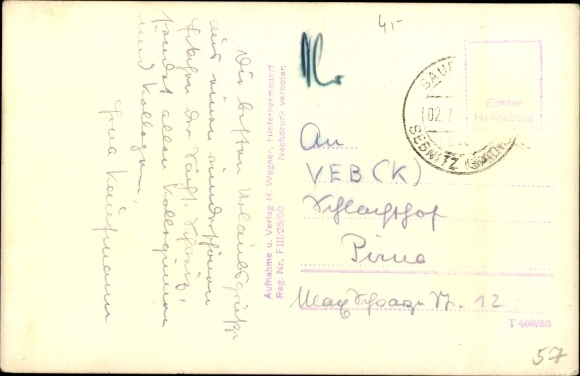 4,-
Die besten Urlaubsgrüße
aus einem wunderschönen
der Sächs. Schweiz!
sendet allen Kolleginnen
und Kollegen,
Kaufmann
Aufnahme u. Verlag H. Wagner, Hinterhermsdorf
Nachdruck verboten
Reg. Nr. F III/29/60
SAUP
02.7
SEBNITZ
Echter
Handabzug
An
VEB (K)
Schlachthof
Pirna
Max Schwarze Str. 12
T 468/58
57